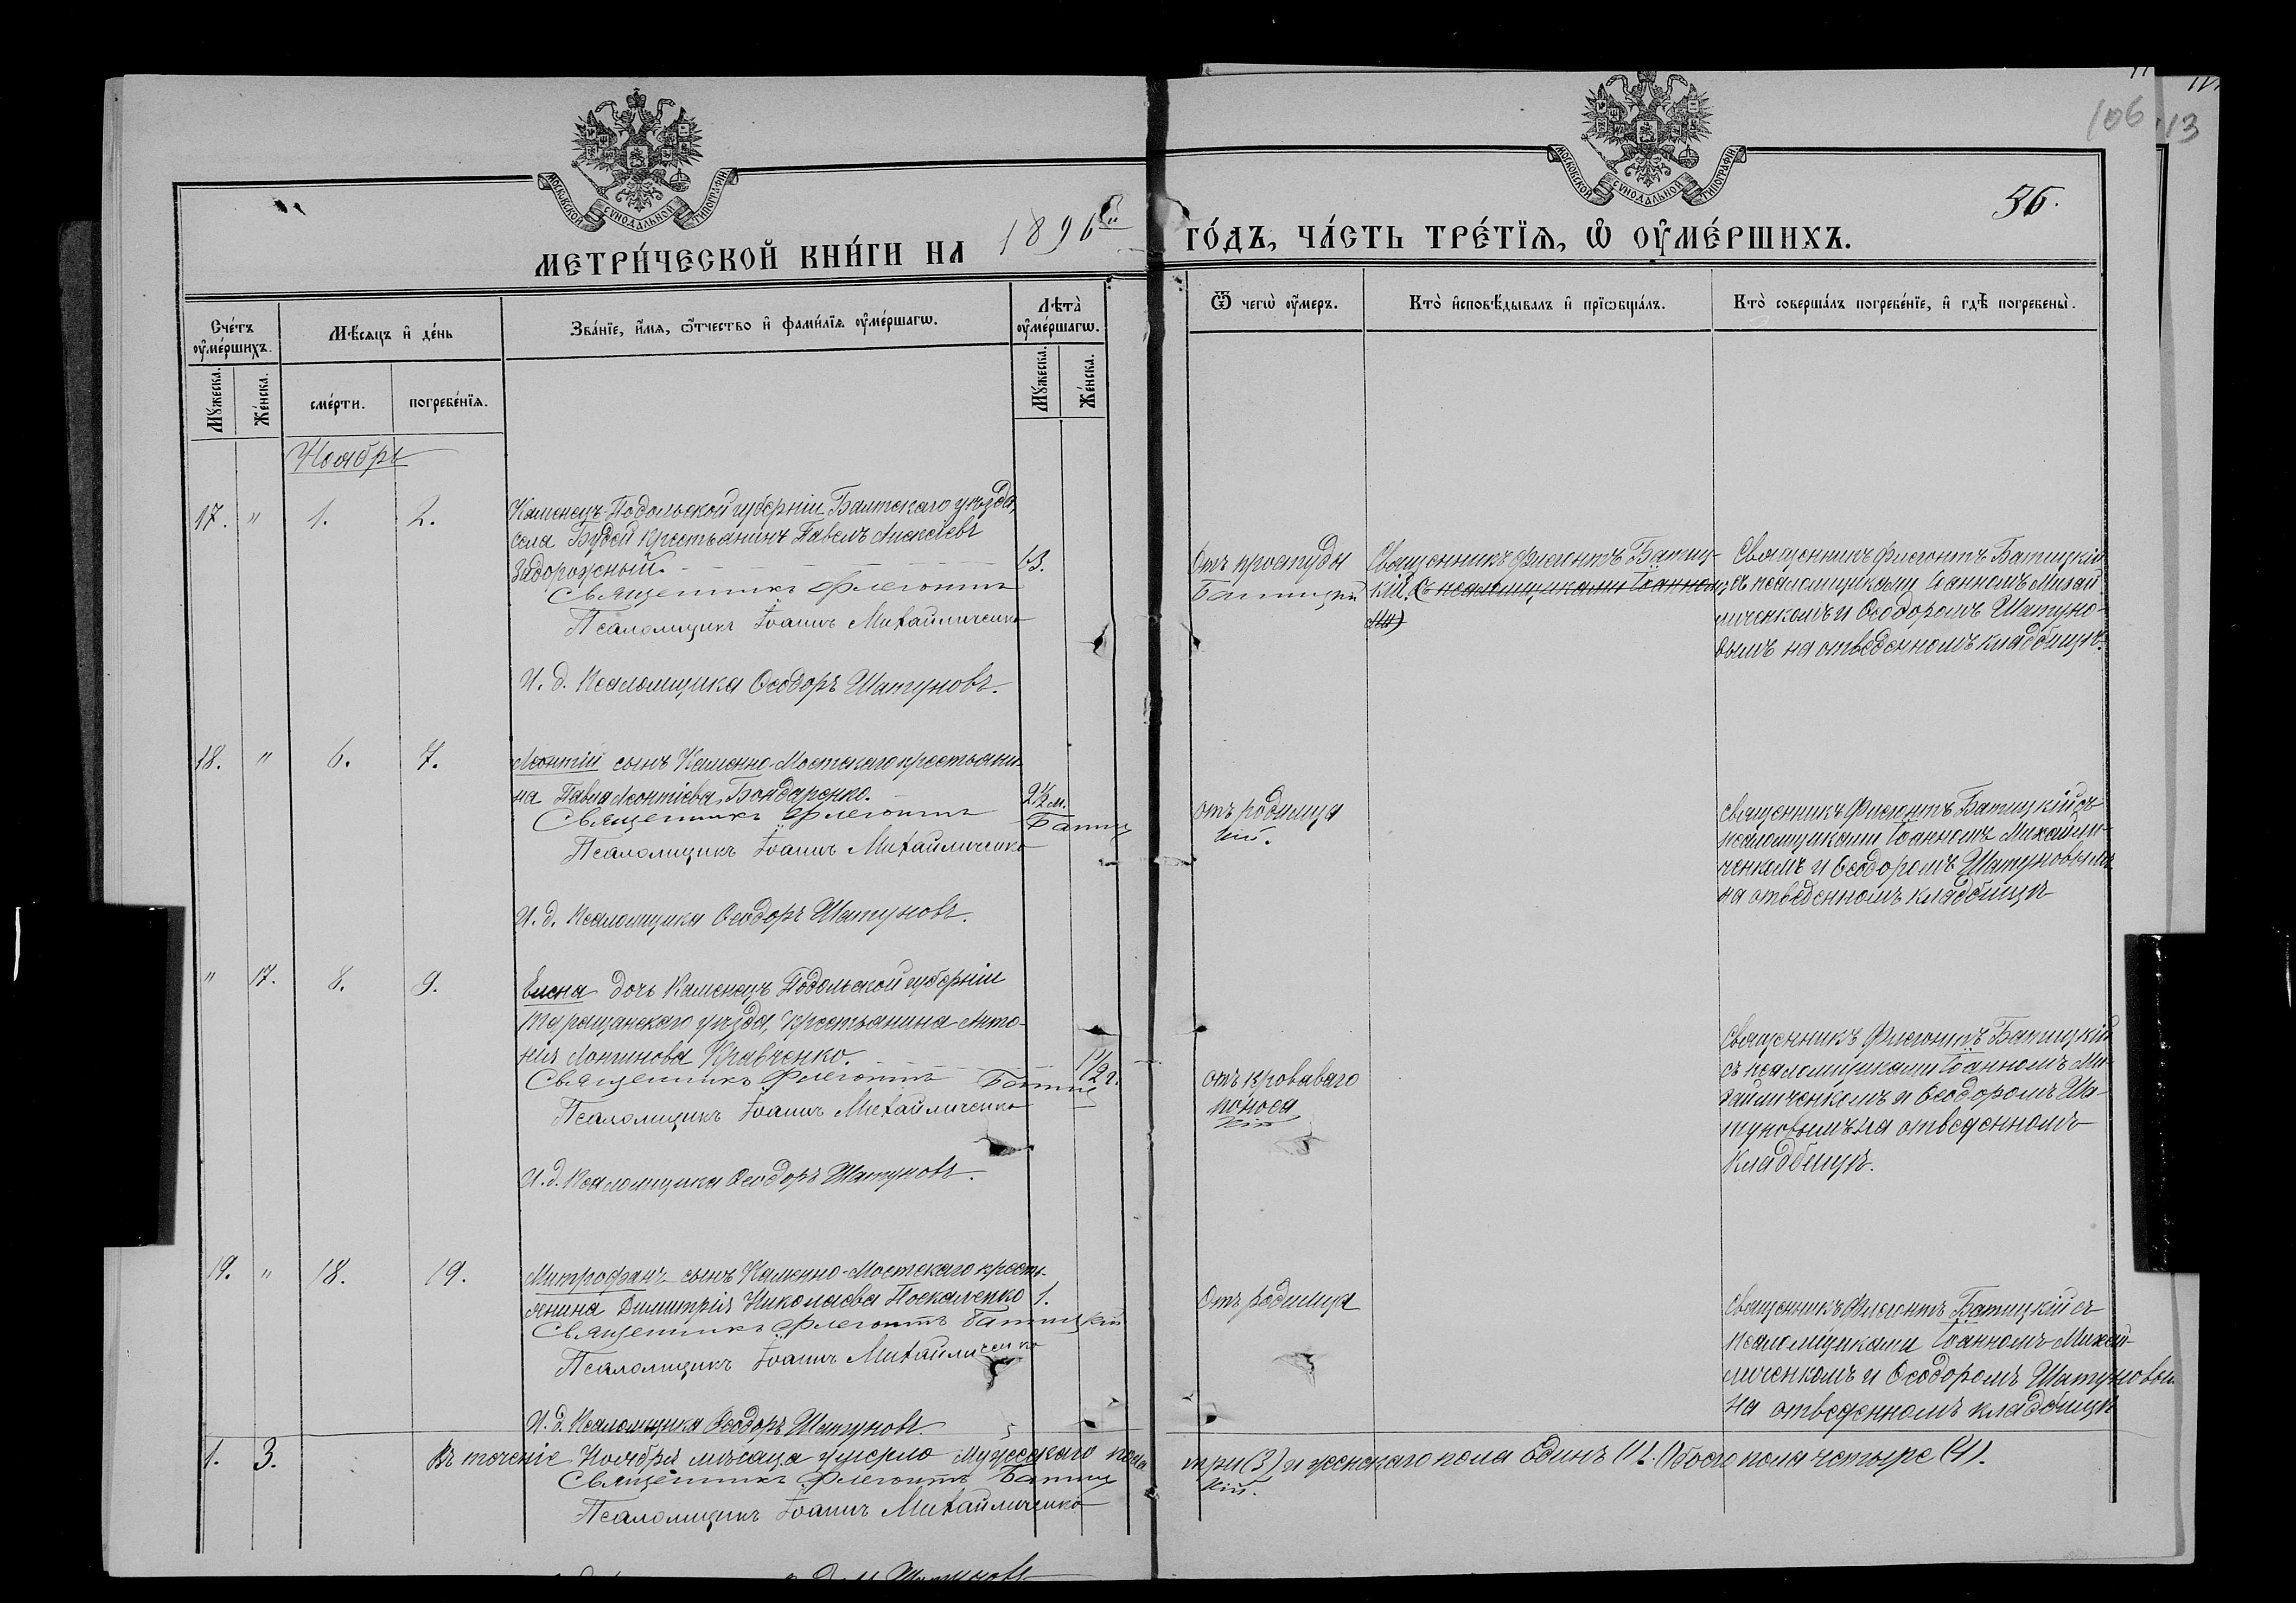 106
13
МОСКОВСКОЙ СѴНОДАЛЬНОЙ ТИПОГРАФІИ
МОСКОВСКОЙ СѴНОДАЛЬНОЙ ТИПОГРАФІИ
36.
МЕТРИ́ЧЕСКОЙ КНИ́ГИ НА 1896й ГО́ДЪ, ЧА́СТЬ ТРЕ́ТЇѦ, Ѡ ОУМЕ́РШИХЪ.
Сче́тъ оуме́ршихъ.
Мꙋжеска.
Же́нска.
Мѣсяцъ и де́нь
сме́рти.
погребе́нїѧ.
Зва́нїе, и́мѧ, ѻ́тчество и фами́лїѧ оуме́ршагѡ.
Лѣта̀ оуме́ршагѡ.
Мꙋжеска.
Же́нска.
Ѿ чегѡ̀ оу́меръ.
Кто̀ исповѣ́дывалъ и прїѡбща́лъ.
Кто̀ соверша́лъ погребе́нїе, и гдѣ̀ погребены̀.
Ноябрь
17. " 1. 2. Каменецъ-Подольской губерніи Балтскаго уѣзда,
села Будей крестьянинъ Павелъ Алексѣевъ
Задорожный. 13.
Священникъ Флегонтъ Батицкій
Псаломщикъ Іоаннъ Михайличенко
И. д. Псаломщика Ѳеодоръ Шатуновъ.
Отъ простуды
Священникъ Флегонтъ Батиц-
кій. (съ псаломщиками Іоанномъ
Священникъ Флегонтъ Батицкій
съ псаломщиками Іоанномъ Михай
личенкомъ и Ѳеодоромъ Шатуно-
вымъ на отведенномъ кладбищѣ.
18. " 6. 7. Леонтій сынъ Каменно-Мостскаго крестьяни-
на Павла Леонтіева Бондаренко. 2½ м.
Священникъ Флегонтъ Батиц
кій.
Псаломщикъ Іоаннъ Михайличенко
И. д. Псаломщика Ѳеодоръ Шатуновъ.
отъ родимца
Священникъ Флегонтъ Батицкій съ
псаломщиками Іоанномъ Михайли-
ченкомъ и Ѳеодоромъ Шатуновымъ
на отведенномъ кладбищѣ
" 17. 8. 9. Елена дочь Каменецъ Подольской губерніи
Таращанскаго уѣзда, крестьянина Анто-
нія Логинова Кравченко. 1½ г.
Священникъ Флегонтъ Батиц
кій
Псаломщикъ Іоаннъ Михайличенко
И. д. Псаломщика Ѳеодоръ Шатуновъ.
отъ кроваваго
поноса
Священникъ Флегонтъ Батицкій
съ псаломщиками Іоанномъ Ми-
хайличенкомъ и Ѳеодоромъ Ша-
туновымъ на отведенномъ
кладбищѣ.
19. " 18. 19. Митрофанъ сынъ Каменно-Мостскаго кресть-
янина Димитрія Николаева Поскаленко 1.
Священникъ Флегонтъ Батицкій
Псаломщикъ Іоаннъ Михайличенко
И. д. Псаломщика Ѳеодоръ Шатуновъ
Отъ родимца
Священникъ Флегонтъ Батицкій съ
псаломщиками Іоанномъ Михай-
личенкомъ и Ѳеодоромъ Шатуновым
на отведенномъ кладбищѣ
1. 3. Въ теченіе Ноября мѣсяца умерло мужескаго пола три (3) и женскаго пола одинъ (1). Обоего пола четыре (4).
Священникъ Флегонтъ Батиц
кій.
Псаломщикъ Іоаннъ Михайличенко
Шатуновъ